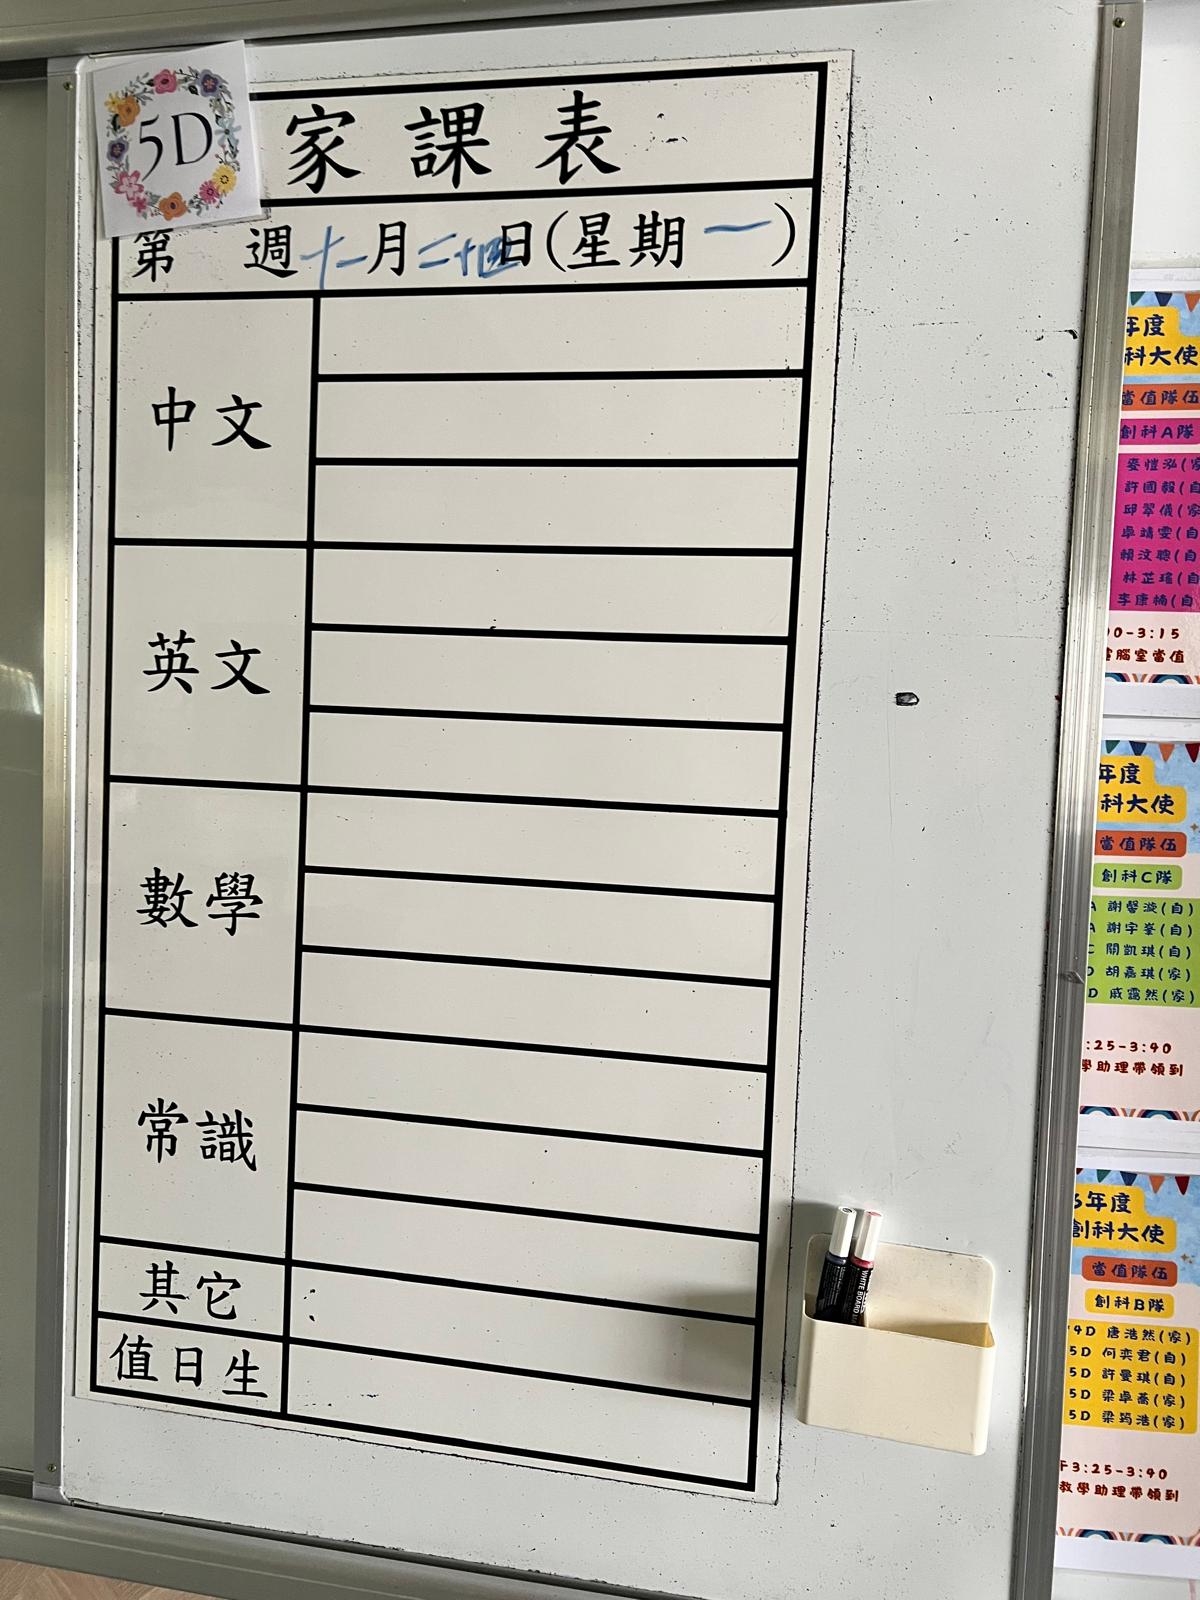 5D
家課表
第 週十一月二十四日(星期一)
中文
英文
數學
常識
其它
值日生
WHITE BOARD
年度
科大使
當值隊伍
創科A隊
麥愷泓(家
許國毅(自
邱翠儀(家
卓靖雯(自
賴汶聰(自
林芷瑤(自
李康楠(自
00-3:15
電腦室當值
年度
科大使
當值隊伍
創科C隊
A 謝馨漩(自)
A 謝宇峯(自)
C 關凱琪(自)
D 胡嘉琪(家)
D 戚靄然(家)
:25-3:40
學助理帶領到
年度
創科大使
當值隊伍
創科B隊
4D 唐浩然(家)
5D 何奕君(自)
5D 許曼琪(自)
5D 梁卓蕎(家)
5D 梁筠浩(家)
午3:25-3:40
教學助理帶領到